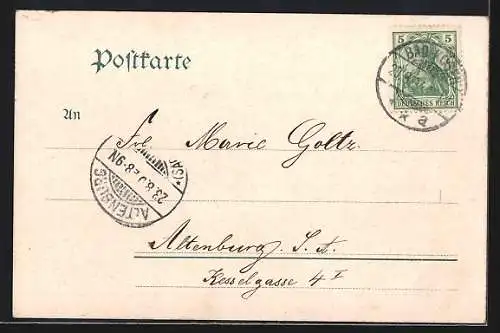 5 5
DEUTSCHES REICH
BAD
a
Postkarte
An
Frl. Marie Goltz.
ALTENBURG
23.8.0 8-9N
*(SA)
Altenburg. S. A.
Kesselgasse 4 I